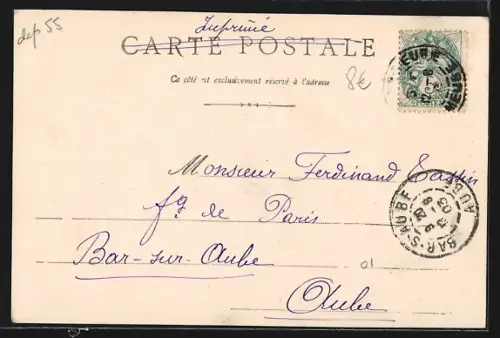 dep 55
Imprimé
CARTE POSTALE
Ce côté est exclusivement réservé à l'adresse
8€
Monsieur Ferdinand
fg de Paris
Bar-sur-Aube
01
Aube
BAR-S-AUBE
AUBE